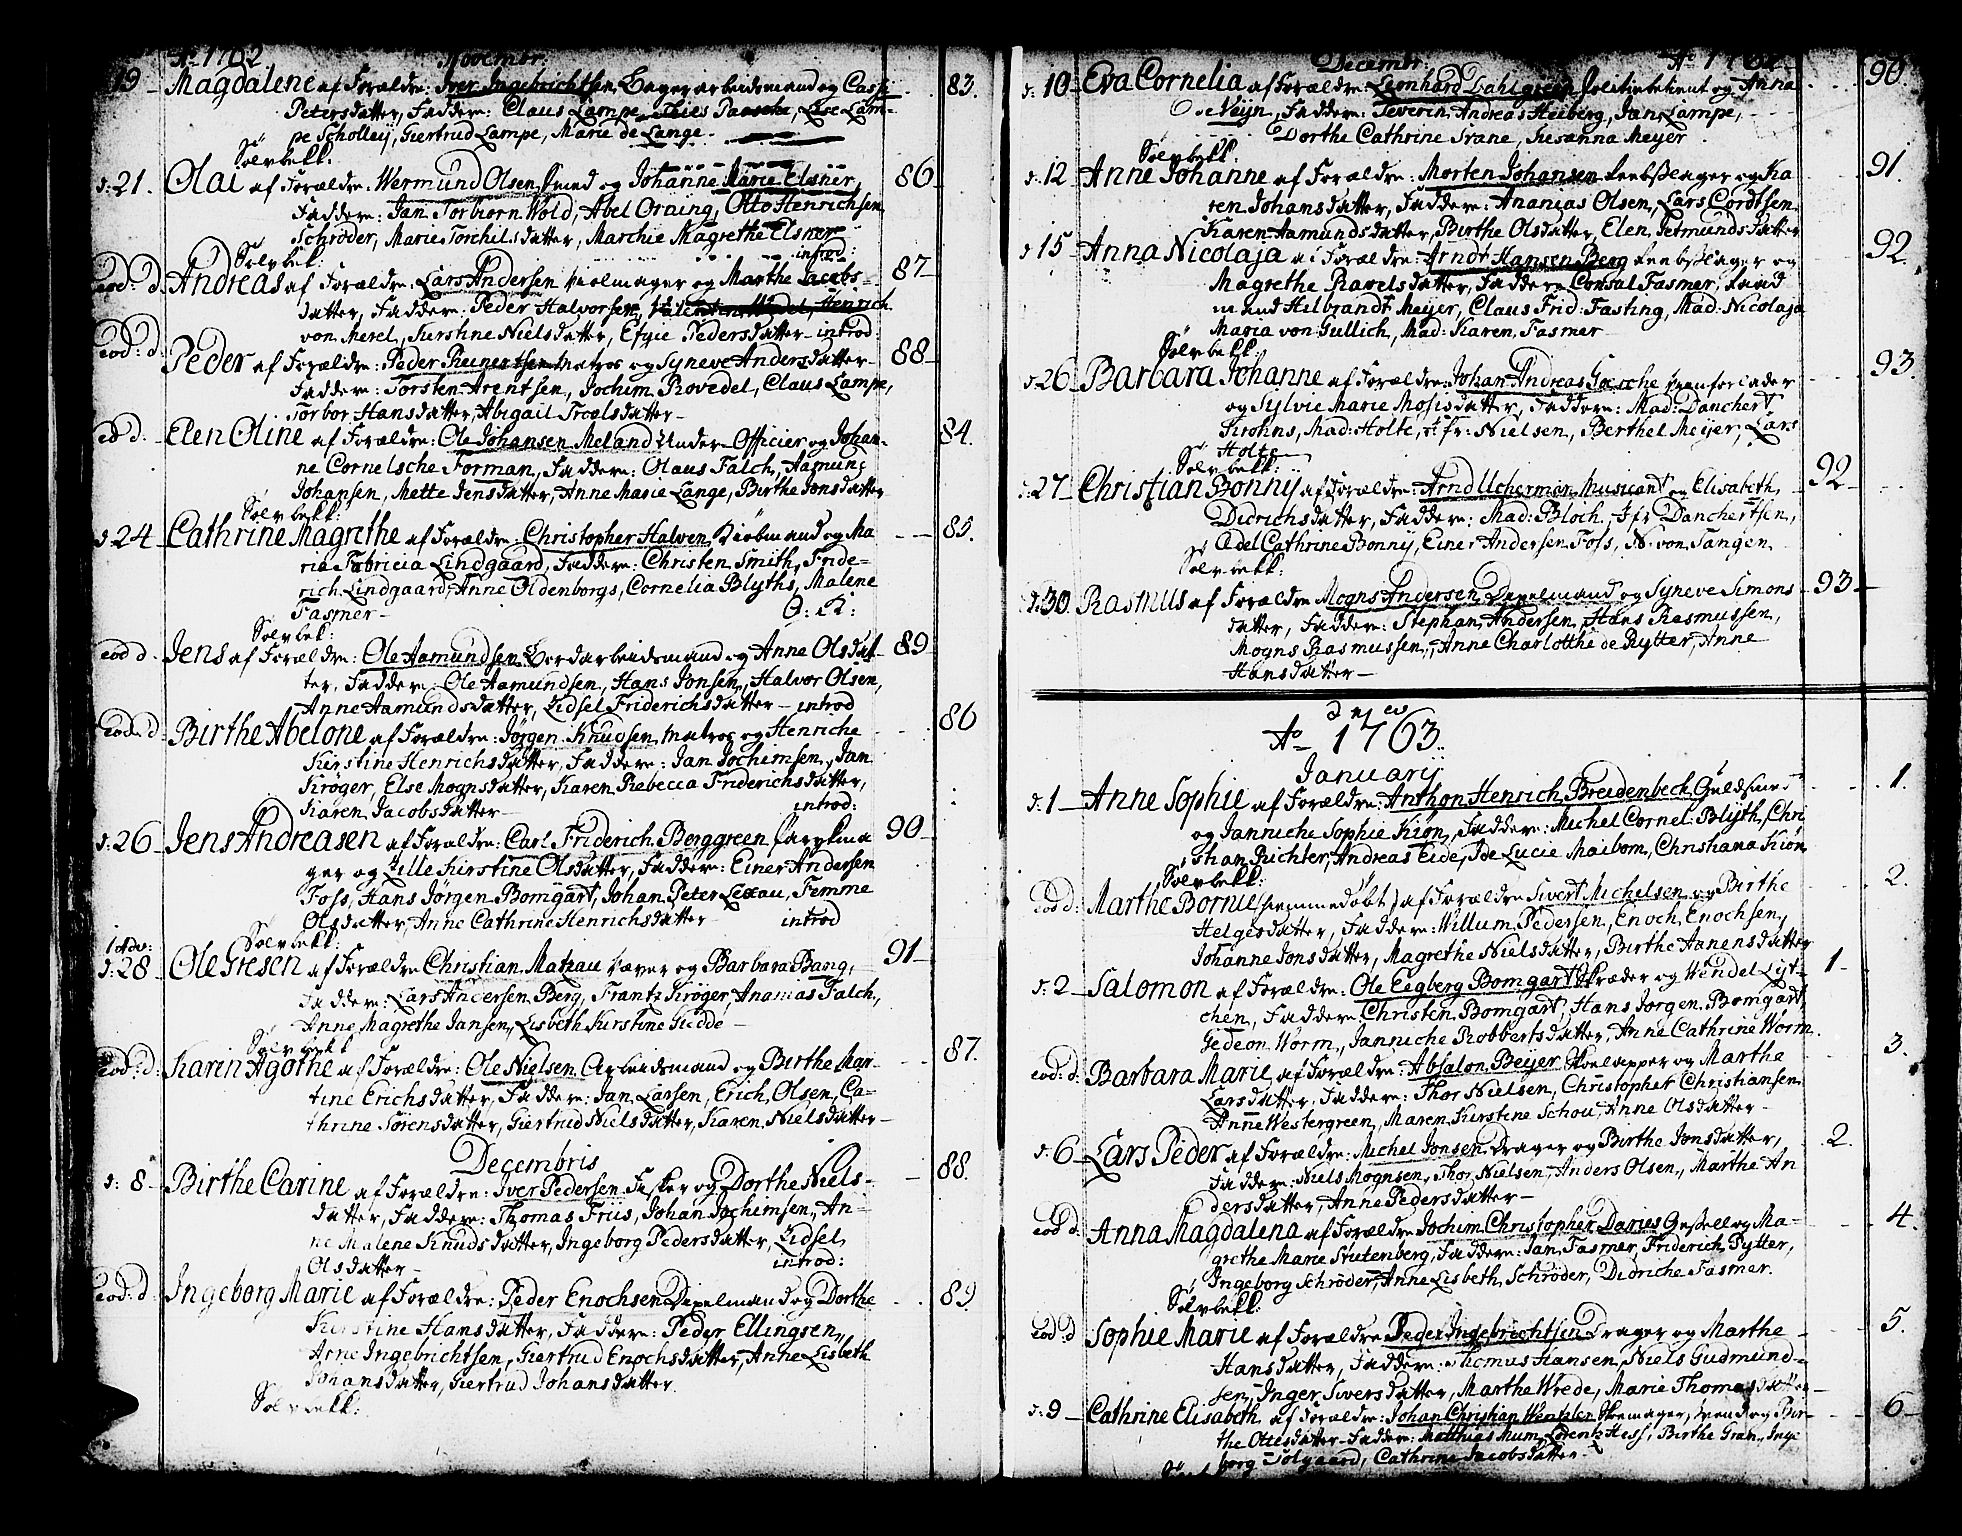 Ao 1762. Novembr:
19 Magdalene af Forældre: Iver Ingebrichtsen Bager arbeidsmand og 83.
Petersdatter, Faddere: Claus Lampe, Thies Paasche, Else Lam-
pe Scholleij, Giertrud Lampe, Marie de Lange.
Sølvbekk:
d: 21. Olai af Forældre: Wermund Olsen Smed og Johanne Marie Elsner, 86
Faddere: Jan Torbiørn Wold, Abel Orning, Otto Henrichsen
Schrøder, Marie Torchilsdatter, Marchie Magrethe Elsner
Sølvbek: introd:
eod: d: Andreas af Forældre: Lars Andersen Hiolmager og Marthe Jacobs- 87
datter, Faddere: Peder Halvorsen, Henrich
von Merel, Kirstine Nielsdatter, Efgie Pedersdatter - introd:
eod: d: Peder af Forældre: Peder Reinertsen Matros og Syneve Andersdatter 88
Faddere: Torsten Arentsen, Jochim Rovedel, Claus Lampe,
Torbor Hansdatter, Abigail Troelsdatter
eod d. Elen Oline af Forældre: Ole Johansen Meland Under-Officier og Johan- 84.
ne Cornelsche Forman, Faddere: Olaus Falch, Aamund
Johansen, Mette Jensdatter, Anne Marie Lange, Birthe Jonsdatter
Sølvbekk:
d: 24 Cathrine Magrethe af Forældre: Christopher Halven Kiøbmand og Ma 85.
ria Fabricia Lindgaard, Faddere: Christen Smith, Fride-
rich Lindgaard, Anne Oldenborgs, Cornelia Blyths, Malene
Fasmer O: K:
Sølvbek:
eod d. Jens af Forældre: Ole Aamundsen Bordarbeidsmand og Anne Olsdat 89
ter, Faddere: Ole Aamundsen, Hans Jonsen, Halvor Olsen,
Anne Aamundsdatter, Lidsel Friderichsdatter - introd
eod: d: Birthe Abelone af Forældre: Jørgen Knudsen Matros og Henriche 86
Kirstine Henrichsdatter, Faddere: Jan Jochimsen, Jan
Krøger, Else Mognsdatter, Karen Rebecca Friderichsdatter,
Karen Jacobsdatter introd:
d: 26 Jens Andreasen af Forældre: Carl Friderich Berggreen Parykma 90
ger og Lille Kirstine Olsdatter, Faddere: Einer Andersen
Foss, Hans Jørgen Bomgart, Johan Peter Lexau, Femme
Olsdatter, Anne Cathrine Henrichsdatter introd
Sølvbekk:
1 Adv:
d: 28 Ole Giesen af Forældre Christian Matzau Væver og Barbara Bang, 91
Faddere: Lars Andersen Berg, Frantz Krøger, Ananias Falch,
Anne Magrethe Jansen, Lisbeth Kirstine Giedde
Sølvbekk
eod: d: Karin Agothe af Forældre: Ole Nielsen Arbeidsmand og Birthe Mar- 87.
tine Erichsdatter, Faddere: Jan Larsen, Erich Olsen, Ca-
thrine Sørensdatter, Giertrud Nielsdatter, Karen Nielsdatter
Decembris
d: 8 Birthe Carine af Forældre: Iver Pedersen Fisker og Dorthe Niels- 88.
datter, Faddere: Thomas Friis, Johan Jochimsen, An-
ne Malene Knudsdatter, Ingeborg Pedersdatter, Lidsel
Olsdatter introd:
eod: d Ingeborg Marie af Forældre: Peder Enochsen Pipelmand og Dorthe 89.
Kirstine Hansdatter, Faddere: Peder Ellingsen,
Arne Ingebrichtsen, Giertrud Enochsdatter, Anne Lisbeth
Johansdatter, Giertrud Johansdatter.
Sølvbekk:
Decembr: Ao 1762
d: 10 Eva Cornelia af Forældre: Leonhard Dahlgreen Politiebetient og Anna 90.
De Veijn, Faddere: Severin Andreas Heiberg, Jan Lampe,
Dorthe Cathrine Trane, Susanna Meyer
Sølvbekk:
d: 12 Anne Johanne af Forældre: Morten Johansen Reebslager og Ka 91.
ren Johansdatter, Faddere: Ananias Olsen, Lars Cordtsen
Karen Aamundsdatter, Birthe Olsdatter, Elen Jetmundsdatter
d 15 Anna Nicolaja af Forældre: Arndt Hansen Berg Reebslager og 92.
Magrethe Ravelsdatter, Faddere Consul Fasmer, Kand
mand Hilbrandt Meyer, Claus Frid: Fasting, Mad: Nicolaja
Maria von Gullich, Mad: Karen Fasmer
Sølvbekk:
d: 26 Barbara Johanne af Forældre: Johan Andreas Giesche Brenforlader 93.
og Sylvie Marie Mosisdatter, Faddere: Mad: Danchert
Krohns, Mad: Holte, Jfr: Nielsen, Berthel Meijer, Lars
Holte
Sølvbekk:
d: 27 Christian Bonnij af Forældre: Arnd Uchermøn Musicant og Elisabeth 92
Didrichsdatter, Faddere: Mad: Bloch, Jfr Danchertsen,
Adel Cathrine Bonnij, Einer Andersen Foss, N: von Tangen
Sølvbekk:
d: 30. Rasmus af Forældre Mogns Andersen Pipelmand og Syneve Simons 93
datter, Faddere: Stephan Andersen, Hans Rasmussen,
Mogns Rasmussen, Anne Charlotthe de Rytter, Anne
Hansdatter
Ao 1763.
Januarij
d: 1 Anne Sophie af Forældre: Anthon Henrich Breidenbeck Guldsmed 1.
og Janniche Sophie Kiøn, Faddere: Michel Cornel: Blyth, Chri
stian Richter, Andreas Eide, Ide Lucie Maibom, Christiana Kiøn
Sølvbekk:
eod d: Marthe Bornie (hiemmedøbt) af Forældre Sivert Michelsen og Birthe 2.
Helgesdatter, Faddere: Willum Pedersen, Enoch Enochsen,
Johanne Jonsdatter, Magrethe Nielsdatter, Birthe Hanensdatter
d: 2 Salomon af Forældre: Ole Eegberg Bomgart Skræder og Wendel Lyt- 1
chen, Faddere Christen Bomgart, Hans Jørgen Bomgart,
Gedeon Worm, Janniche Robbertsdatter, Anne Cathrine Worm.
eod: d: Barbara Marie af Forældre: Absalon Beijer Skolapper og Marthe 3.
Larsdatter, Faddere: Thor Nielsen, Christopher Christiansen
Anne Westergreen, Maren Kirstine Schou, Anne Olsdatter
d: 6 Lars Peder af Forældre: Michel Jonsen Drager og Birthe Jonsdatter, 2.
Faddere: Niels Mognsen, Thor Nielsen, Anders Olsen, Marthe An
dersdatter, Anne Pedersdatter
eod d. Anna Magdalena af Forældre Jochim Christopher Daries Gesell og Ma- 4.
grethe Marie Stutenberg, Faddere: Jan Fasmer, Friderich Rytter,
Ingeborg Schrøder, Anne Lisbeth Schrøder, Didriche Fasmer.
Sølvbekk:
eod: d Sophie Marie af Forældre Peder Ingebrichtsen Drager og Marthe 5.
Hansdatter, Faddere: Thomas Hansen, Niels Gudmund-
sen, Inger Siversdatter, Marthe Wrede, Marie Thomasdatter
d: 9 Cathrine Elisabeth af Forældre: Johan Christian Wentzler Skomager svend og Bir- 6
the Ottesdatter Faddere: Matthias Mum, Lorentz Hess, Birthe Gran, Inge
borg Tolgaard, Cathrine Jacobsdatter